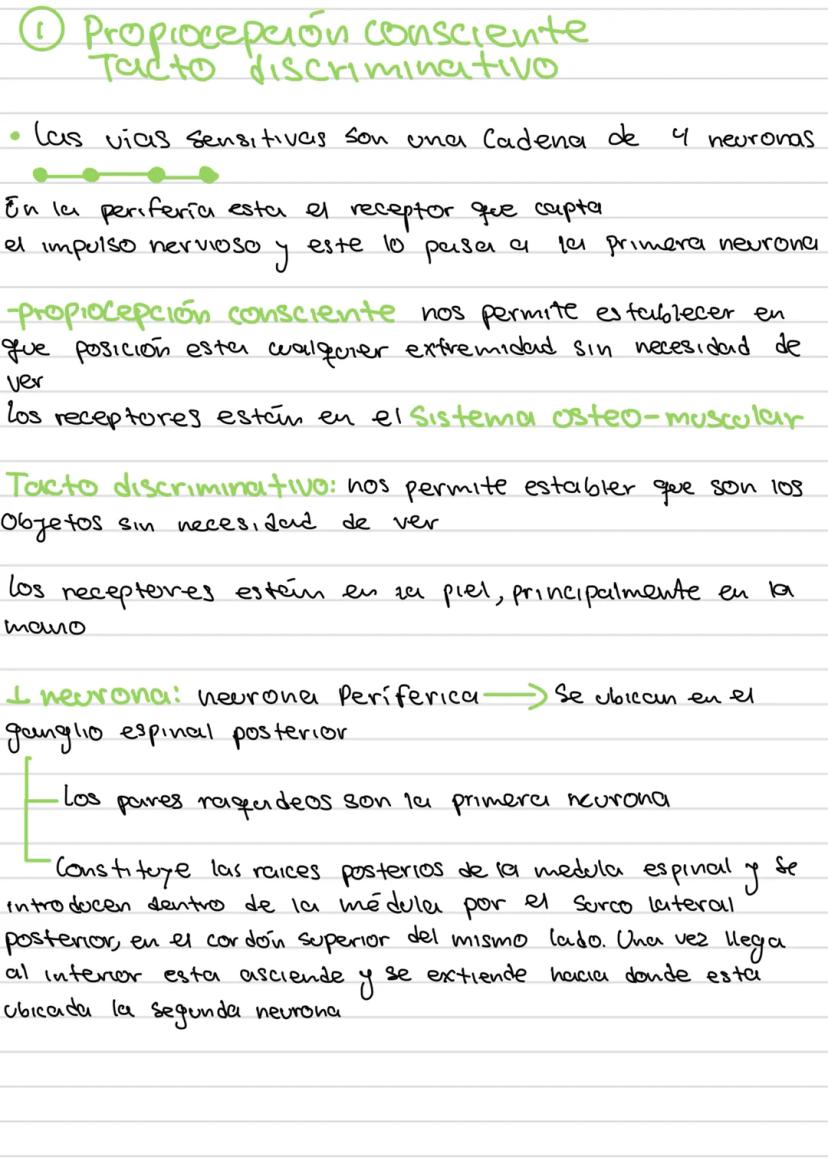 ① Propiocepción consciente
Tacto discriminativo
• Las vias sensitivas son una Cadena de 4 neuronas
En la periferia esta el receptor que capta
el impulso nervioso y este lo pasa a la primera neurona
-propiocepción consciente nos permite establecer en
que posición esta cualquier extremidad sin necesidad de
ver
Los receptores están en el Sistema osteo-muscular
Tacto discriminativo: nos permite establer que son los
Objetos sin necesidad de ver
Los receptores están en la piel, principalmente en la
mano
1 neurona: neurona Períferica → Se ubican en el
ganglio espinal posterior
Los pares raquideos son la primera neurona
Constituye las raices posterios de la medula espinal y se
introducen dentro de la médula por el surco lateral
posterior, en el cordón superior del mismo lado. Una vez llega
al interior esta asciende y se extiende hacia donde esta
ubicada la segunda neurona